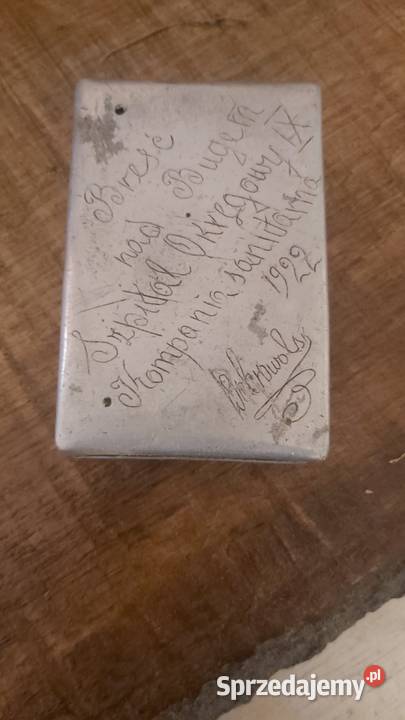 Brześć
nad Bugem
Szpital Okręgowy IX
Kompania sanitarna
1922
Sprzedajemy.pl